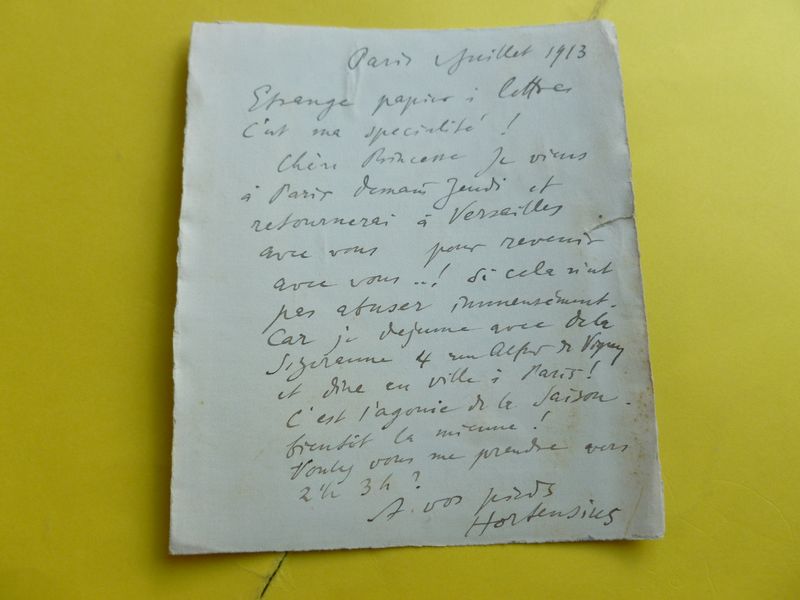 Paris Juillet 1913
Etrange papier à lettres
C'est ma specialité !
Chère Princesse Je viens
à Paris demain Jeudi et
retournerai à Versailles
avec vous pour revenir
avec vous ..! Si cela n'est
pas abuser immensément.
Car je dejeune avec de la
Sizeranne 4 rue Alfred de Vigny
et dine en ville à Paris !
C'est l'agonie de la Saison.
bientôt la mienne !
Voulez vous me prendre vers
2h 3h ?
A vos pieds
Hortensius